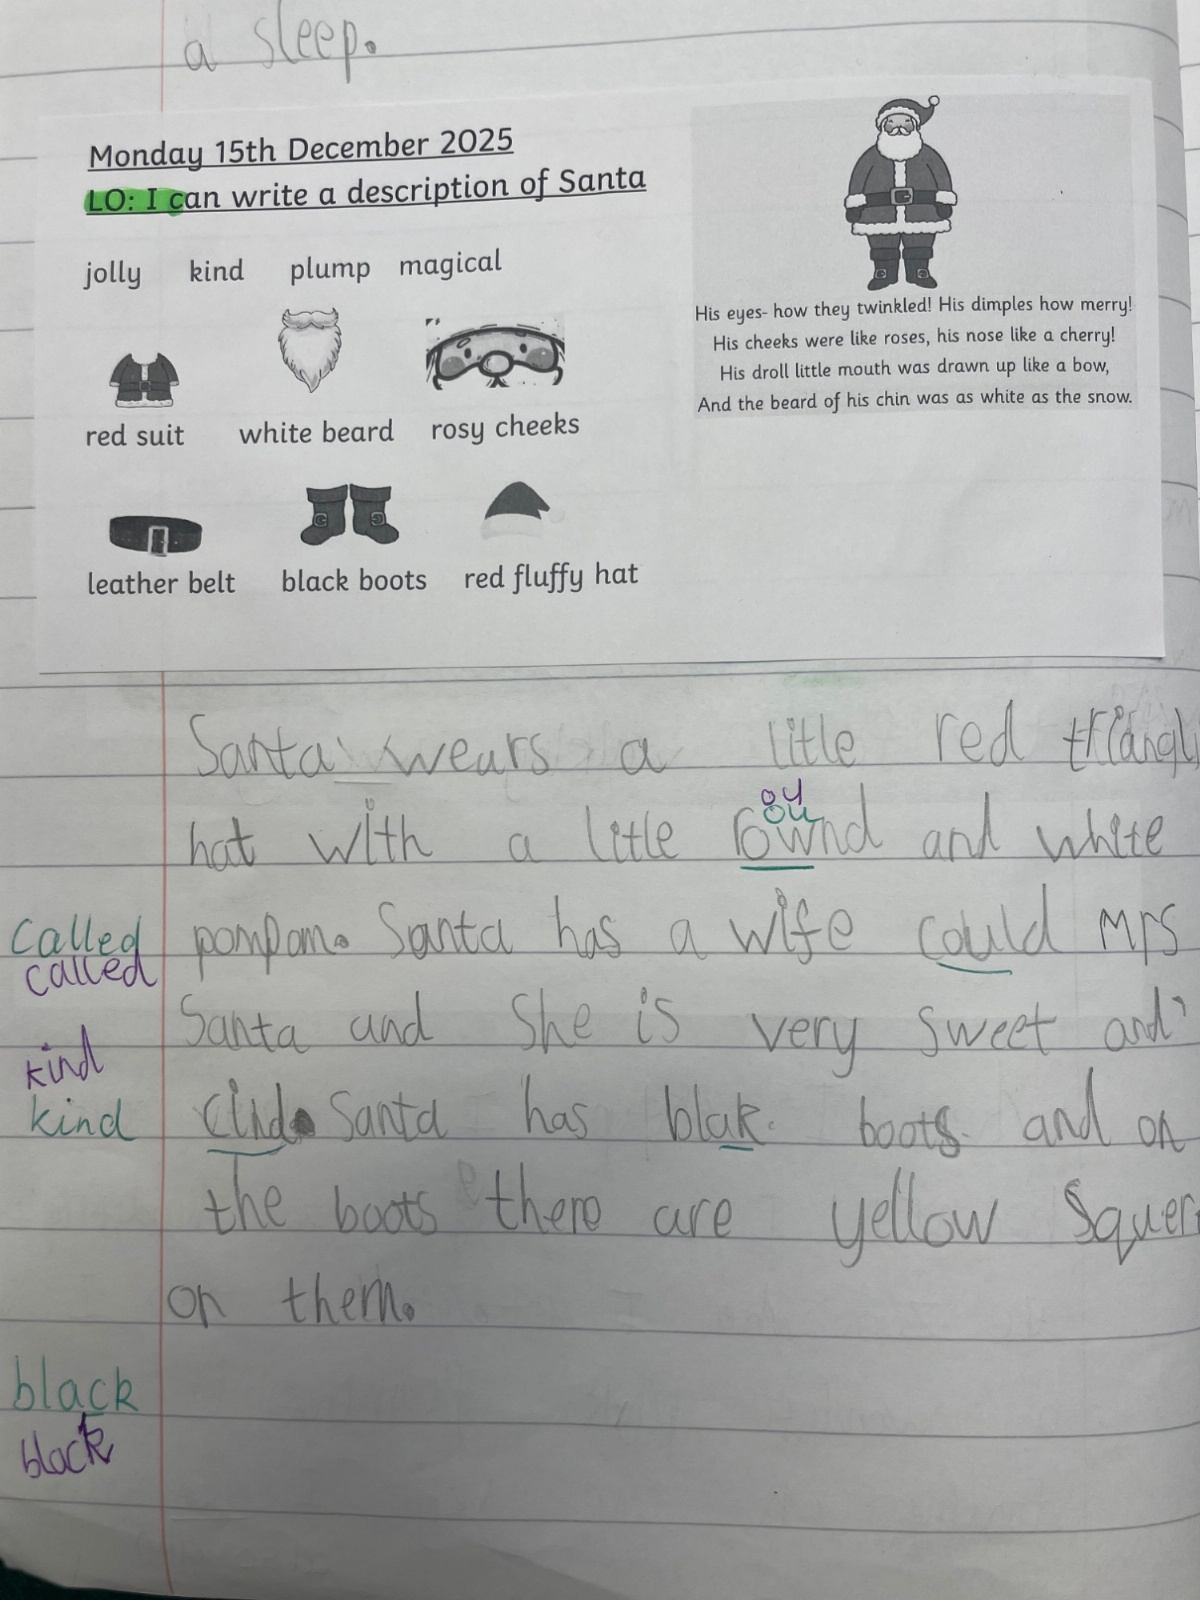 a sleep.
Monday 15th December 2025
LO: I can write a description of Santa
jolly kind plump magical
red suit white beard rosy cheeks
leather belt black boots red fluffy hat
His eyes- how they twinkled! His dimples how merry!
His cheeks were like roses, his nose like a cherry!
His droll little mouth was drawn up like a bow,
And the beard of his chin was as white as the snow.
Santa wears a little red
ou
ou
hat with a little rownd and white
called pompom. Santa has a wife could Mrs
called
Santa and She is very sweet and
kind
kind cind. Santa has blak boots and on
the boots there are yellow
on them.
black
black